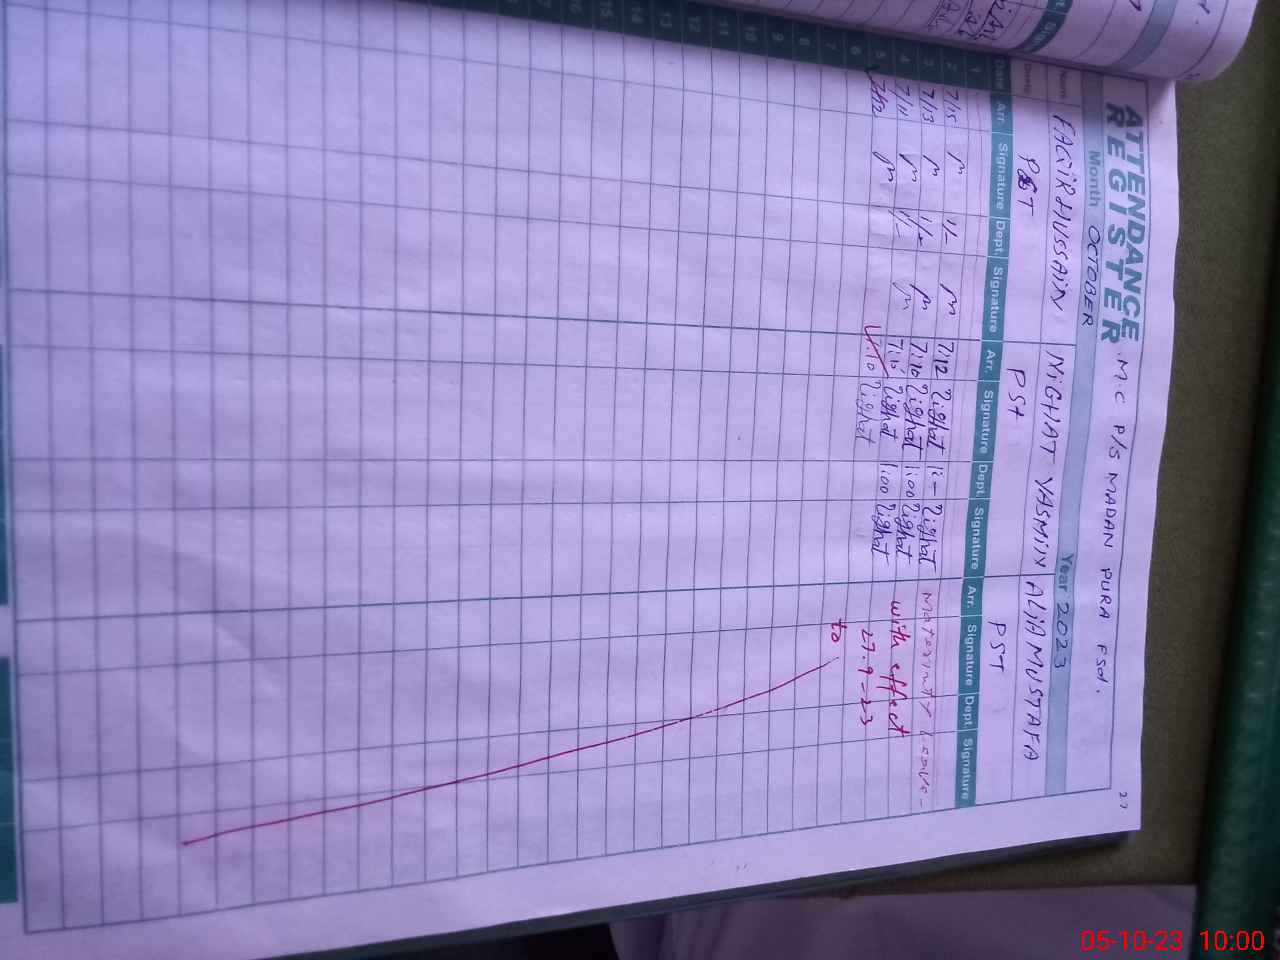 27
ATTENDANCE REGISTER
M.C P/S MADAN PURA FSd.
Month OCTOBER Year 2023
Name FAQIR HUSSAIN NIGHAT YASMIN ALIA MUSTAFA
PST PST PST
Date Arr. Signature Dept. Signature Arr. Signature Dept. Signature Arr. Signature Dept. Signature
1
2 7/15 1/- 7:12 Nighat 1:- Nighat Maternity Leave-
3 7/13 1/- 7:10 Nighat 1:00 Nighat with effect
4 7/11 1/- Nighat 1:00 Nighat 27.9-23
5 7/12 Nighat to
6
7
8
9
10
11
12
13
14
15
16
17
05-10-23 10:00